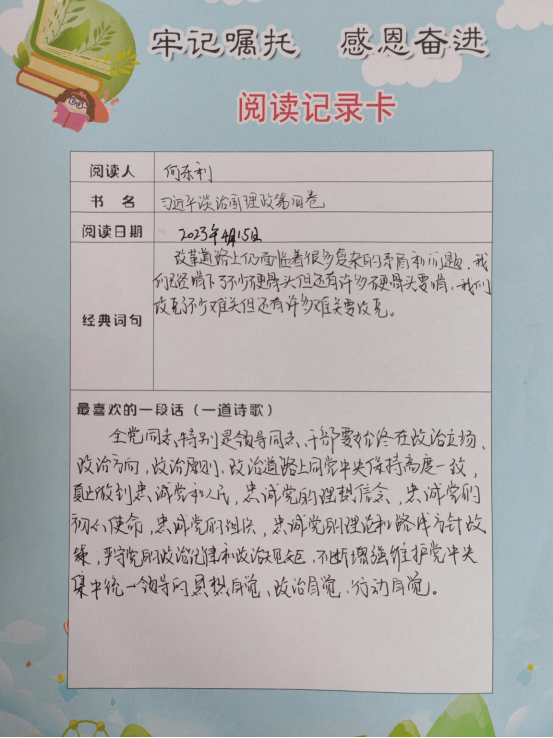 牢记嘱托 感恩奋进
阅读记录卡
阅读人 何东利
书名 习近平谈治国理政第四卷
阅读日期 2023年4月15日
经典词句
改革道路上仍面临着很多复杂的矛盾和问题,我
们已经啃下了不少硬骨头但还有许多硬骨头要啃,我们
攻克了不少难关但还有许多难关要攻克。
最喜欢的一段话(一道诗歌)
全党同志、特别是领导同志、干部要始终在政治立场、
政治方向,政治原则、政治道路上同党中央保持高度一致,
真正做到忠诚党和人民,忠诚党的理想信念,忠诚党的
初心使命,忠诚党的组织,忠诚党的理论和路线方针政
策,严守党的政治纪律和政治规矩,不断增强维护党中央
集中统一领导的思想自觉、政治自觉、行动自觉。